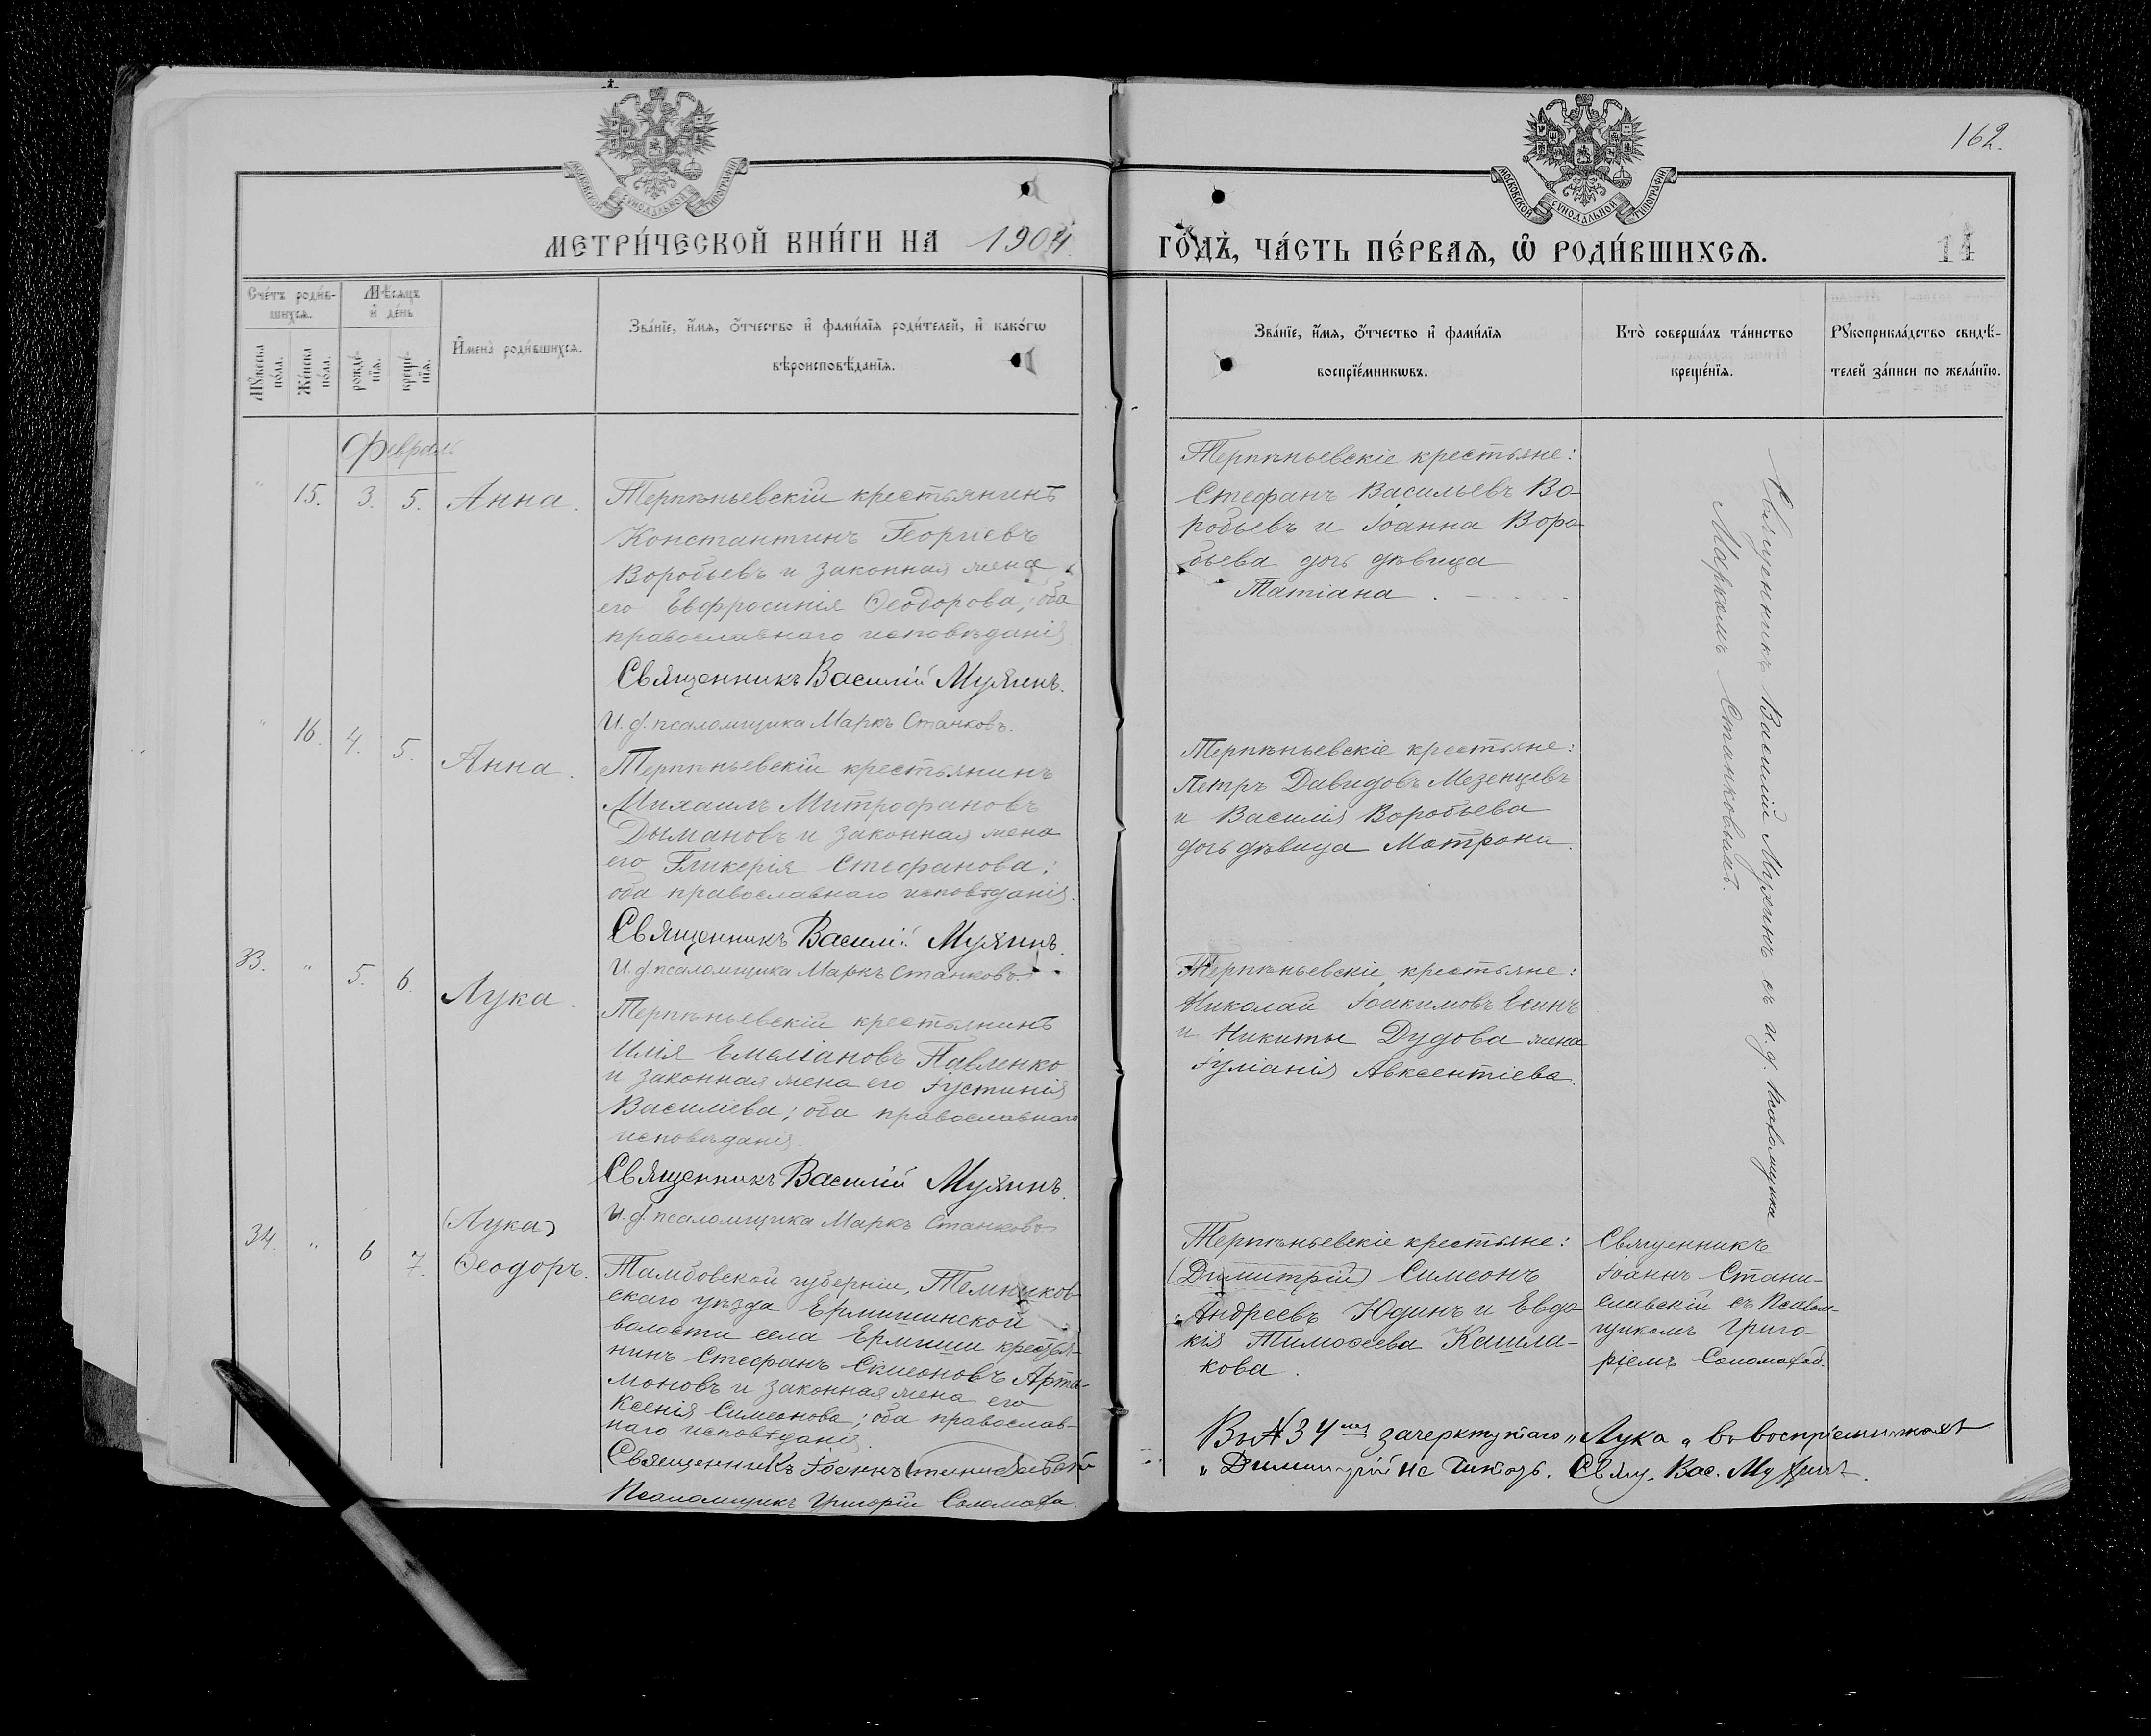 162.
МОСКОВСКОЙ СѴНОДАЛЬНОЙ ТИПОГРАФІИ
МОСКОВСКОЙ СѴНОДАЛЬНОЙ ТИПОГРАФІИ
МЕТРИ́ЧЕСКОЙ КНИ́ГИ НА 1904
ГО́ДЪ, ЧА́СТЬ ПЕ́РВАЯ, Ѡ РОДИ́ВШИХСѦ.
14
Сче́тъ роди́в-
шихсѧ.
Мѣ́сѧцъ
и҆ де́нь
Мꙋ́жеска
по́ла.
Же́нска
по́ла.
рожде́-
нїѧ.
креще́-
нїѧ.
И҆мена̀ роди́вшихсѧ.
Зва́нїе, и҆́мѧ, ѻ҆́тчество и҆ фами́лїѧ роди́телей, и҆ како́гѡ
вѣроисповѣ́данїѧ.
Зва́нїе, и҆́мѧ, ѻ҆́тчество и҆ фами́лїѧ
воспрїе́мникѡвъ.
Кто̀ соверша́лъ та́инство
креще́нїѧ.
Рꙋкоприкла́дство свидѣ́-
телей за́писи по жела́нїю.
Февраль
" 15. 3. 5. Анна.
Терпѣньевскій крестьянинъ
Константинъ Георгіевъ
Воробьевъ и законная жена
его Евфросинія Ѳеодорова; оба
православнаго исповѣданія
Священникъ Василій Мухинъ.
И.д. псаломщика Маркъ Станковъ.
Терпѣньевскіе крестьяне:
Стефанъ Васильевъ Во-
робьевъ и Іоанна Воро-
бьева дочь дѣвица
Татіана.
Священникъ Василій Мухинъ съ и.д. псаломщика
Маркомъ Станковымъ.
" 16. 4. 5. Анна.
Терпѣньевскій крестьянинъ
Михаилъ Митрофановъ
Дымановъ и законная жена
его Гликерія Стефанова;
оба православнаго исповѣданія.
Священникъ Василій Мухинъ.
И.д. псаломщика Маркъ Станковъ.
Терпѣньевскіе крестьяне:
Петръ Давидовъ Мезенцевъ
и Василія Воробьева
дочь дѣвица Матрона.
33. " 5. 6. Лука.
Терпѣньевскій крестьянинъ
Илія Емеліановъ Павленко
и законная жена его Іустинія
Василіева; оба православнаго
исповѣданія.
Священникъ Василій Мухинъ.
И.д. псаломщика Маркъ Станковъ
Терпѣньевскіе крестьяне:
Николай Іоакимовъ Есинъ
и Никиты Дудова жена
Іуліанія Авксентіева.
34. " 6 7. (Лука)
Ѳеодоръ.
Тамбовской губерніи, Темников-
скаго уѣзда Ермишинской
волости села Ермиши крестья-
нинъ Стефанъ Симеоновъ Арта-
моновъ и законная жена его
Ксенія Симеонова; оба православ-
наго исповѣданія.
Священникъ Іоаннъ Станиславскій
Псаломщикъ Григорій Соломаха.
Терпѣньевскіе крестьяне:
(Димитрій) Симеонъ
Андреевъ Юдинъ и Евдо-
кія Тимоѳеева Кашла-
кова.
Священникъ
Іоаннъ Стани-
славскій съ псалом-
щикомъ Григо-
ріемъ Соломахой.
Въ № 34 зачеркнутаго „Лука„ въ воспріемникахъ
„Димитрій не читать. Свящ. Вас. Мухинъ.